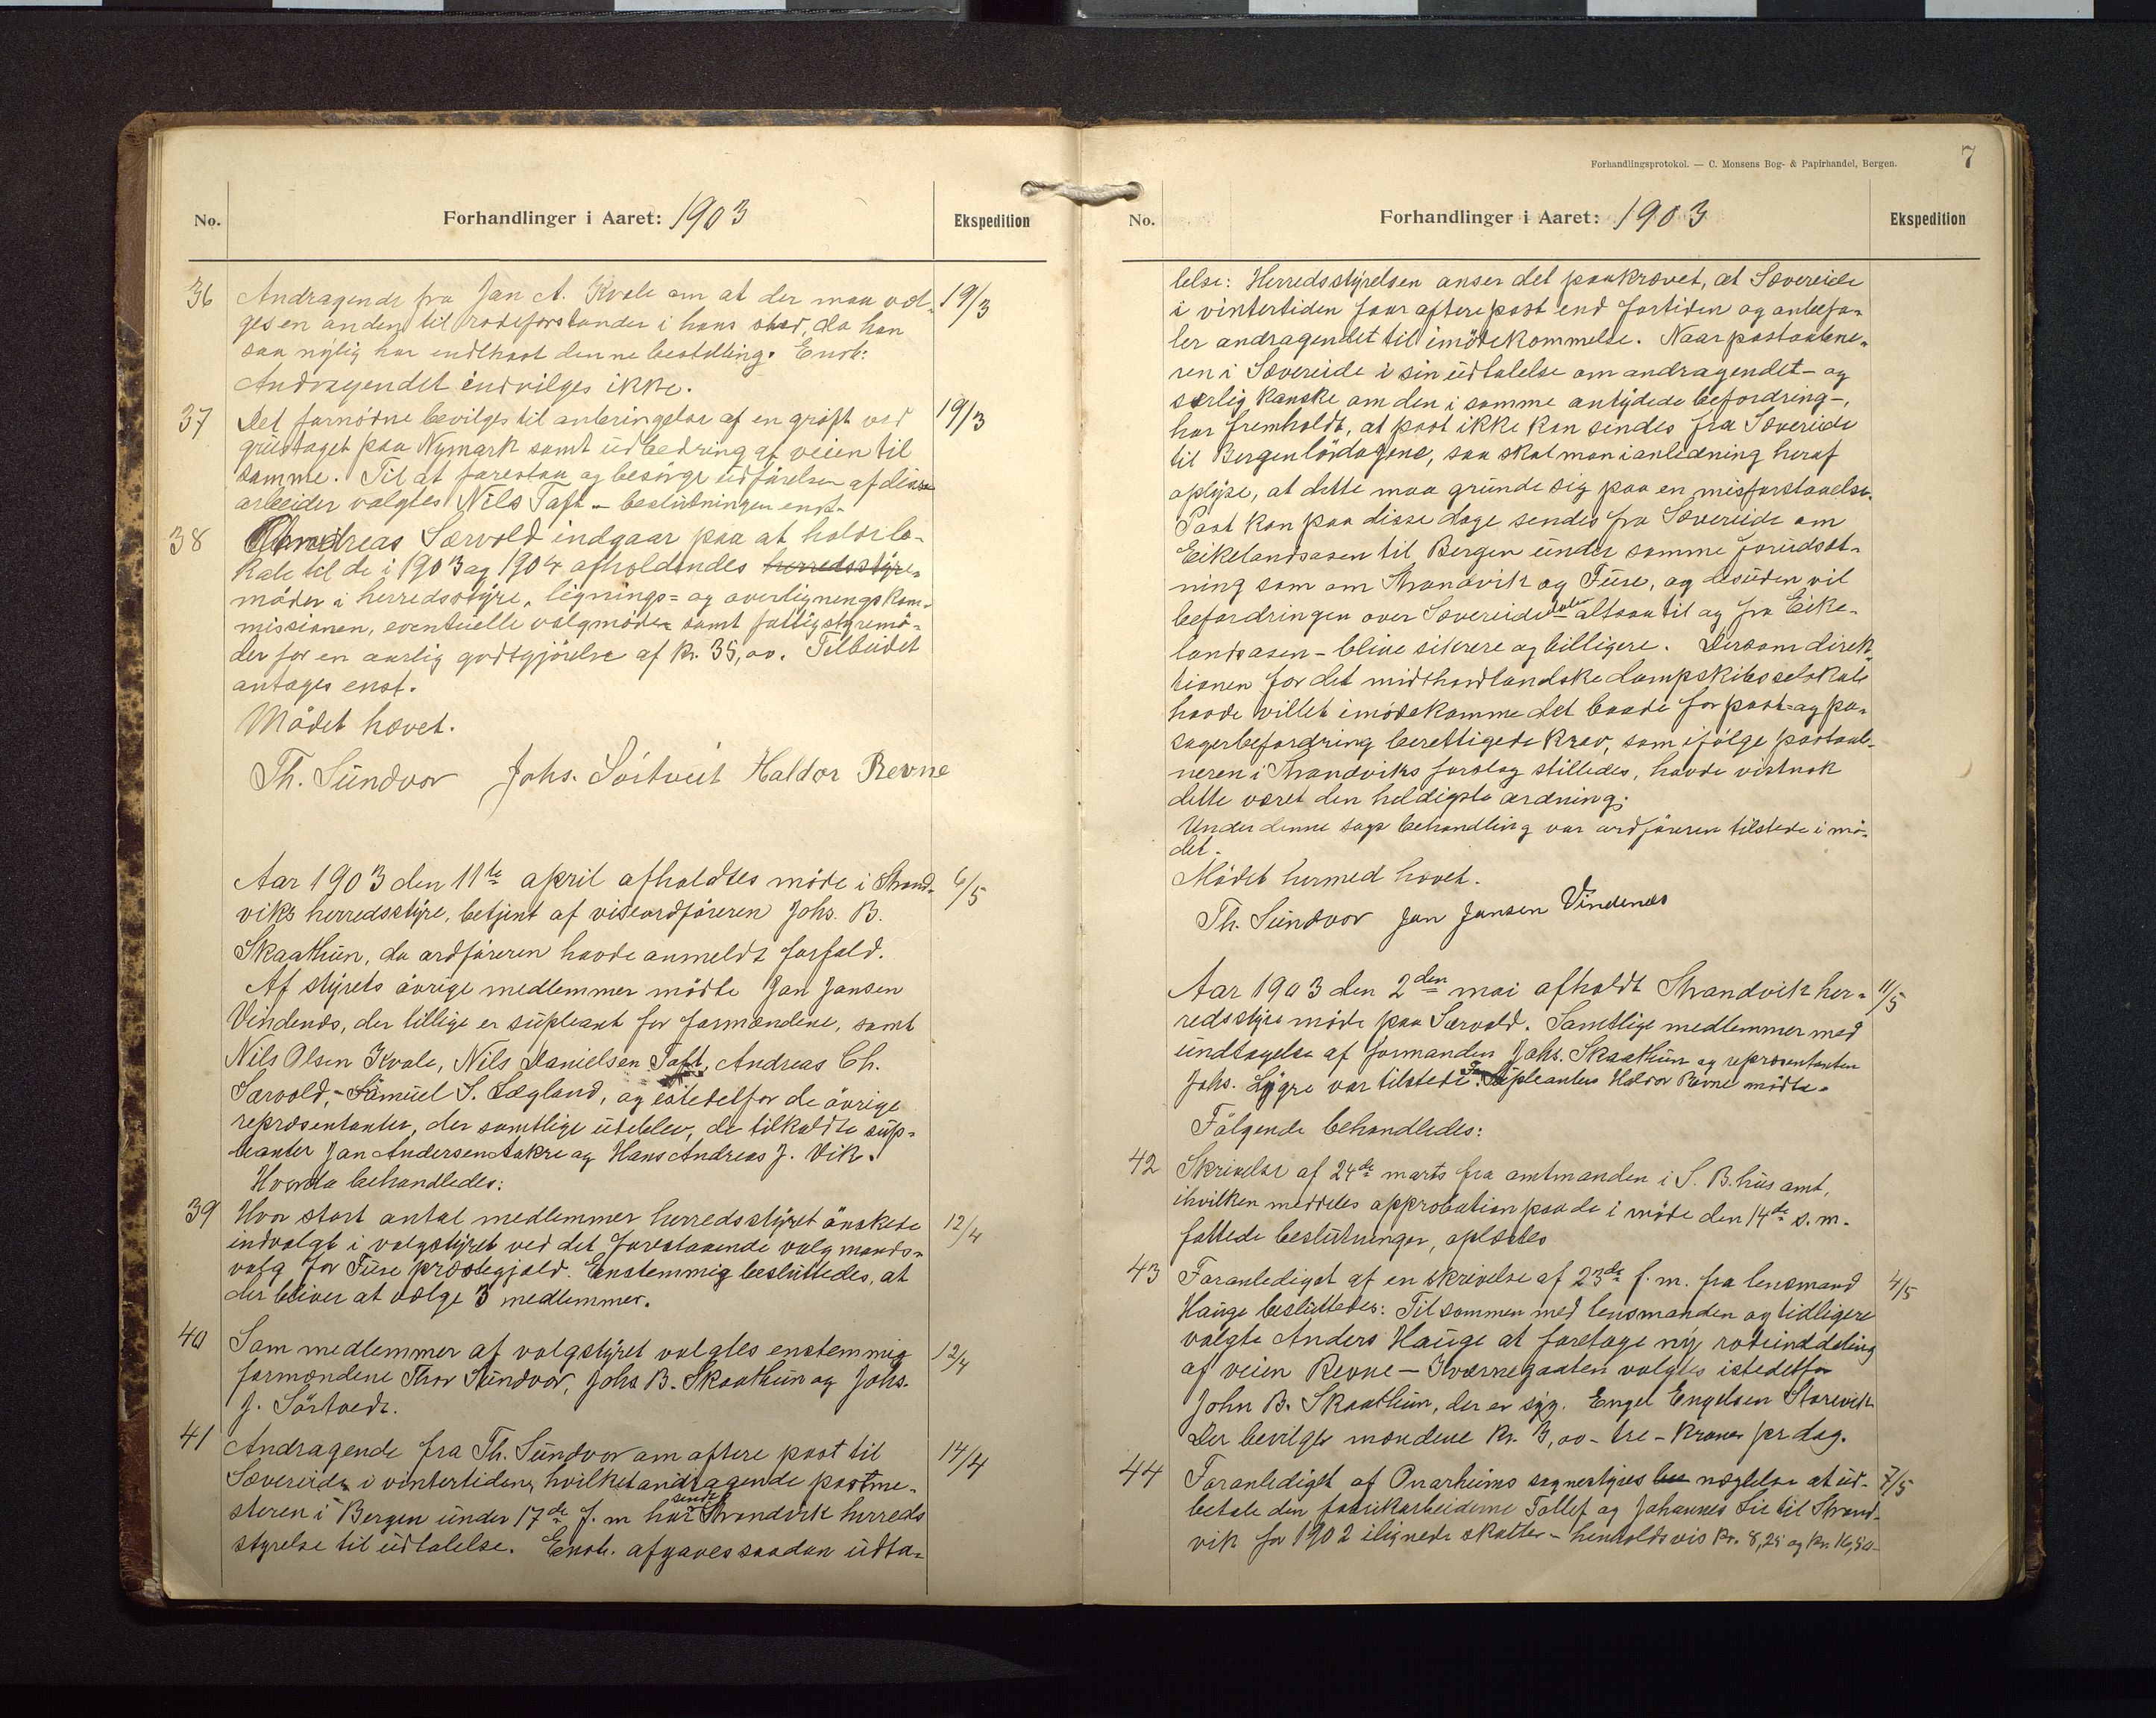 No. Forhandlinger i Aaret: 1903 Ekspedition
36 Andragende fra Jan A. Kvale om at der maa væl- 19/3
ges en anden til rodeforstander i hans sted, da han
saa nylig har endt denne bestilling. Enst:
Andragendet indvilges ikke.
37 Det fornødne bevilges til anbringelse af en grøft ved 19/3
grustaget paa Nymark samt udbedring af veien til
samme. Til at forestaa og besørge udførelsen af disse
arbeider valgtes Nils Taft - beslutningen enst.
38 Andreas Særvold indgaar paa at holde lo-
kale til de i 1903 og 1904 afholdendes herredsstyre-
møder i herredsstyre, lignings- og overligningskom-
missionen, eventuelle valgmøder samt fattigstyremø-
der for en aarlig godtgjørelse af kr. 35,00. Tilbudet
antages enst.
Mødet hævet.
Th. Sundvor Johs. Sörtveit Haldor Revne
Aar 1903 den 11te april afholdtes møde i Strand- 6/5
viks herredsstyre, betjent af viseordføreren Johs. B.
Skaathun, da ordføreren havde anmeldt forfald.
Af styrets øvrige medlemmer mødte Jan Jansen
Vindenes, der tillige er supleant for formændene, samt
Nils Olsen Kvale, Nils Danielsen Taft, Andreas Ch.
Særvold, Samuel S. Lægland, og istedetfor de øvrige
repræsentanter, der samtlige udeblev, de tilkaldte sup-
leanter Jan Andersen Aakre og Hans Andreas J. Vik.
Hvorda behandledes:
39 Hvor stort antal medlemmer herredsstyret ønskede 12/4
indvalgt i valgstyret ved det forestaaende valgmands-
valg for Fuse præstegjæld. Enstemmig besluttedes, at
der bliver at vælge 3 medlemmer.
40 Som medlemmer af valgstyret valgtes enstemmig 12/4
formændene Thor Sundvor, Johs B. Skaathun og Johs.
J. Sørtvedt.
41 Andragende fra Th. Sundvor om oftere post til 14/4
Sævereide i vintertiden, hvilket andragende postme-
steren i Bergen under 17de f. m har sendt Strandvik herreds
styrelse til udtalelse. Enst. afgaves saadan udta-
Forhandlingsprotokol. — C. Monsens Bog- & Papirhandel, Bergen. 7
No. Forhandlinger i Aaret: 1903 Ekspedition
lelse: Herredsstyrelsen anser det paakrævet, at Sævereide
i vintertiden faar oftere post end fortiden og anbefa-
ler andragendet til imødekommelse. Naar postaabne-
ren i Sævereide i sin udtalelse om andragendet - og
særlig kanske om den i samme antydede befordring -,
har fremholdt, at post ikke kan sendes fra Sævereide
til Bergen lørdagene, saa skal man i anledning heraf
oplyse, at dette maa grunde sig paa en misforstaaelse.
Post kan paa disse dage sendes fra Sævereide om
Eikelandsosen til Bergen under samme forudsæt-
ning som om Strandvik og Fuse, og desuden vil
befordringen over Sævereide - altsaa til og fra Eike-
landsosen - blive sikrere og billigere. Dersom direk-
tionen for det midthordlandske dampskibsselskab
havde villet imødekomme det baade for post- og pa-
sagerbefordring berettigede krav, som ifølge postaab-
neren i Strandviks forslag stilledes, havde vistnok
dette været den heldigste ordning.
Under denne sags behandling var ordføreren tilstede i mø-
det.
Mødet hermed hævet.
Th. Sundvor Jan Jansen Vindenes
Aar 1903 den 2den mai afholdt Strandvik her- 11/5
redsstyre møde paa Særvold. Samtlige medlemmer med
undtagelse af formanden Johs. Skaathun og repræsentanten
Johs. Lygre var tilstede. Supleanten Haldor Revne mødte.
Følgende behandledes:
42 Skrivelse af 24de marts fra amtmanden i S. B.hus amt,
ihvilken meddeles approbation paa de i møde den 14de s. m.
fattede beslutninger, oplæstes
43 Foranlediget af en skrivelse af 23de f. m. fra lensmand 4/5
Hauge besluttedes: Til sammen med lensmanden og tidligere
valgte Anders Hauge at foretage ny rodeinddeling
af veien Revne - Kværnegaaten valgtes istedetfor
John B. Skaathun, der er syg. Engel Engelsen Storevik
Der bevilges mændene kr. 3,00 - tre - kroner pr dag.
44 Foranlediget af Onarheims sognestyres nægtelse at ud- 7/5
betale den fabrikarbeiderne Tollef og Johannes Lie til Strand-
vik for 1902 ilignede skatter - henholdsvis kr. 8,25 og kr. 16,50 -